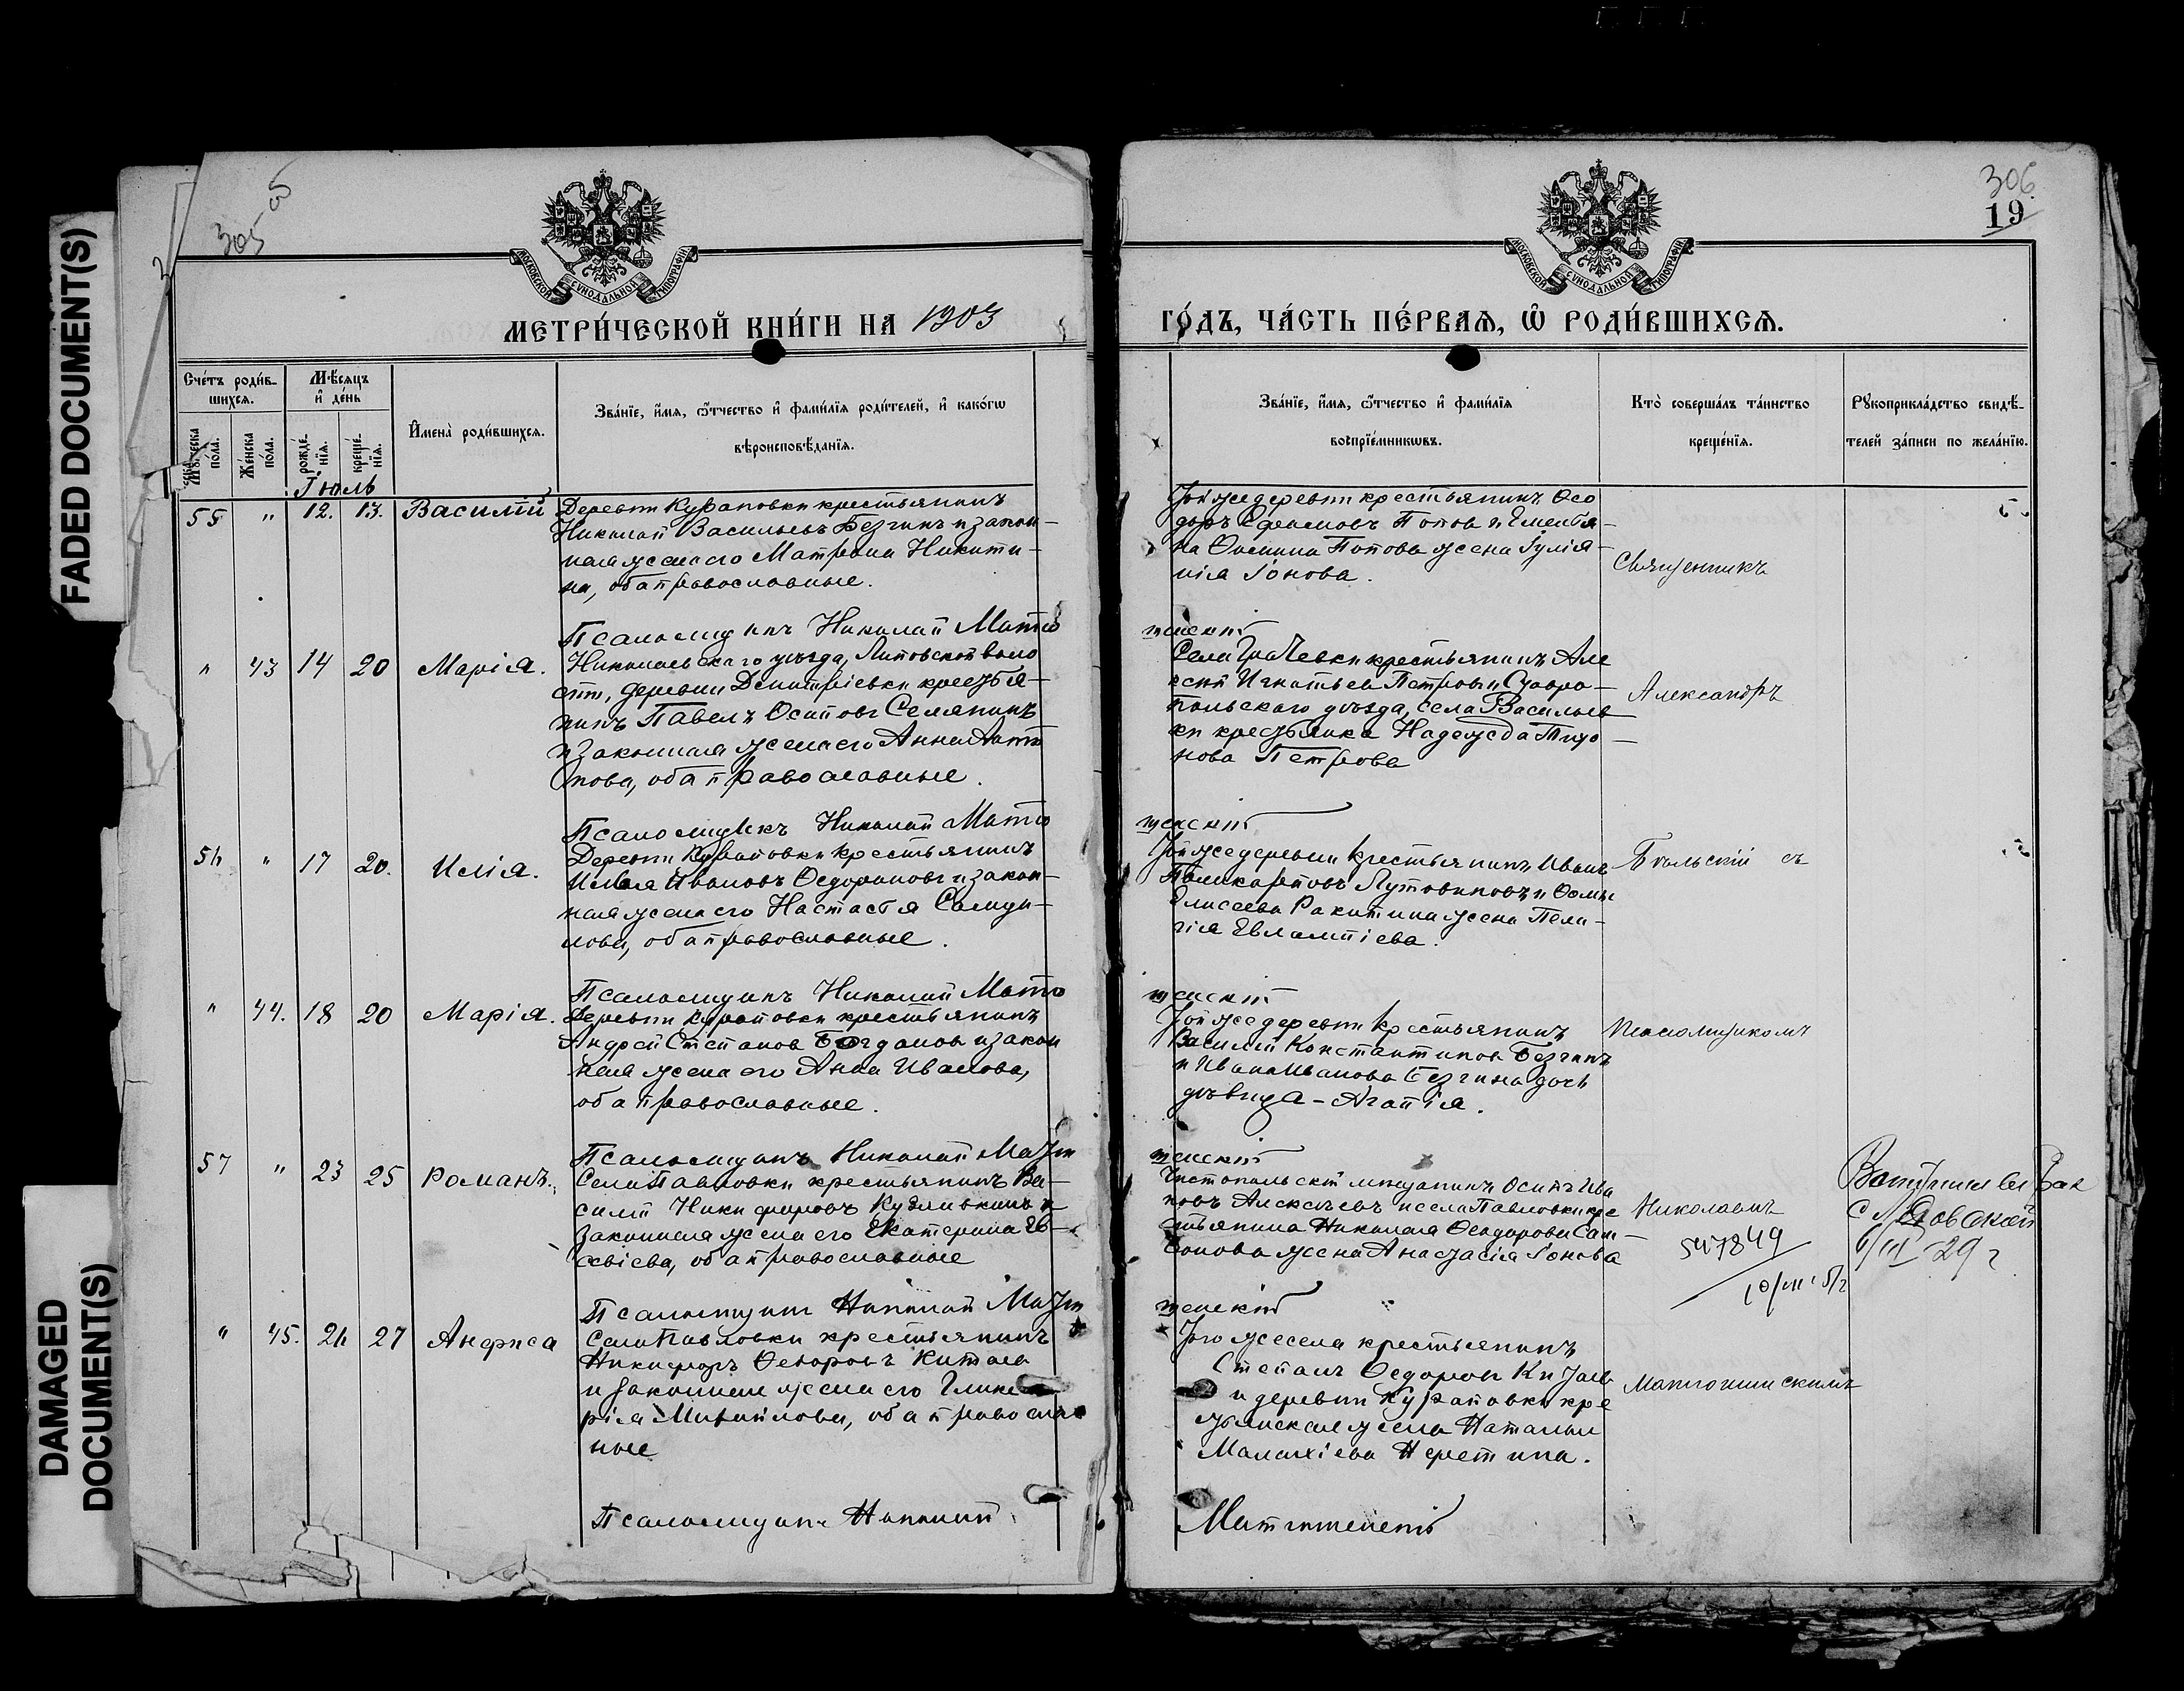 FADED DOCUMENT(S)
DAMAGED
DOCUMENT(S)
305
306
19
МОСКОВСКОЙ СѴНОДАЛЬНОЙ ТИПОГРАФІИ
МОСКОВСКОЙ СѴНОДАЛЬНОЙ ТИПОГРАФІИ
МЕТРИ́ЧЕСКОЙ КНИ́ГИ НА 1903
ГО́ДЪ, ЧА́СТЬ ПЕ́РВАѦ, Ѡ҆ РОДИ́ВШИХСѦ.
Сче́тъ роди́в-
шихсѧ.
Мѣ́сѧцъ
и҆ де́нь
Му́жеска
по́ла.
Же́нска
по́ла.
рожде́-
нїѧ.
креще́-
нїѧ.
И҆мена̀ роди́вшихсѧ.
Зва́нїе, и҆́мѧ, ѻ҆́тчество и҆ фами́лїѧ роди́телей, и҆ како́гѡ
вѣроисповѣ́данїѧ.
Зва́нїе, и҆́мѧ, ѻ҆́тчество и҆ фами́лїѧ
воспрїе́мникѡвъ.
Кто̀ соверша́лъ та́инство
креще́нїѧ.
Рꙋкоприкла́дство свидѣ́-
телей за́писи по жела́нїю.
Іюль
55 " 12. 13. Василій
Деревни Кураповки крестьянинъ
Николай Васильевъ Безгинъ и закон-
ная жена его Матрона Никити-
на, оба православные.
Той же деревни крестьянинъ Ѳео
доръ Ефимовъ Попов и
на Ѳомина Попова жена Іулiа-
нія Іонова.
Священникъ
Псаломщикъ Николай Матю
шенскій
" 43 14 20 Марія.
Николаевскаго уѣзда, Липовской воло
сти, деревни Димитріевки крестья-
нинъ Павелъ Осиповъ Семянинъ
и законная жена его Анна Анто
нова, оба православные.
Села Грачевки крестьянинъ Але
ксѣй Игнатьев Петров и Ставро-
польскаго уѣзда, села Васильев
ки крестьянка Надежда Тихо-
нова Петрова
Александръ
Псаломщикъ Николай Матю
шенскій
56 " 17 20. Илія.
Деревни Кураповки крестьянинъ
Ивановъ Ѳедорановъ и закон-
ная жена его Настасья Самуи-
лова, оба православные.
Той же деревни крестьянинъ Иванъ
Поликарповъ Лутовиновъ и Ѳомы
Елисеева Ракитина жена Пела-
гія Евлампіева.
Бѣльскій съ
Псаломщикъ Николай Матю
шенскій
" 44. 18 20 Марія.
Деревни Кураповки крестьянинъ
Андрей Степанов Богданов и закон
ная жена его Анна Иванова,
оба православные.
Той же деревни крестьянинъ
Василій Константинов Безгинъ
и Ивана Иванова Безгина дочь
дѣвица - Агапія.
Псаломщикомъ
Псаломщикъ Николай Матю
шенскій
57 " 23 25 Романъ.
Села Павловки крестьянинъ Ва-
силій Никифоровъ Кудлинкинъ и
законная жена его Екатерина Ев-
севіева, оба православные
Чистопольскій мѣщанинъ Осипъ Ива
новъ Алексѣевъ и села Павловки кре
стьянина Николая Ѳеодорова Сам-
сонова жена Анастасія Іонова
Николаемъ
547849
6/III 29 г
Псаломщикъ Николай Матю
шенскій
" 45. 26 27 Анфиса
Села Павловки крестьянинъ
Никифоръ Ѳеодоровъ Китаевъ
и законная жена его Глике
рія Михайлова, оба православ
ные
Того же села крестьянинъ
Степанъ Ѳедоровъ Китаевъ
и деревни Кураповки кре
стьянская жена Наталья
Малахіева Неретина.
Матюшинскимъ
Псаломщикъ Николай
Матюшенскій